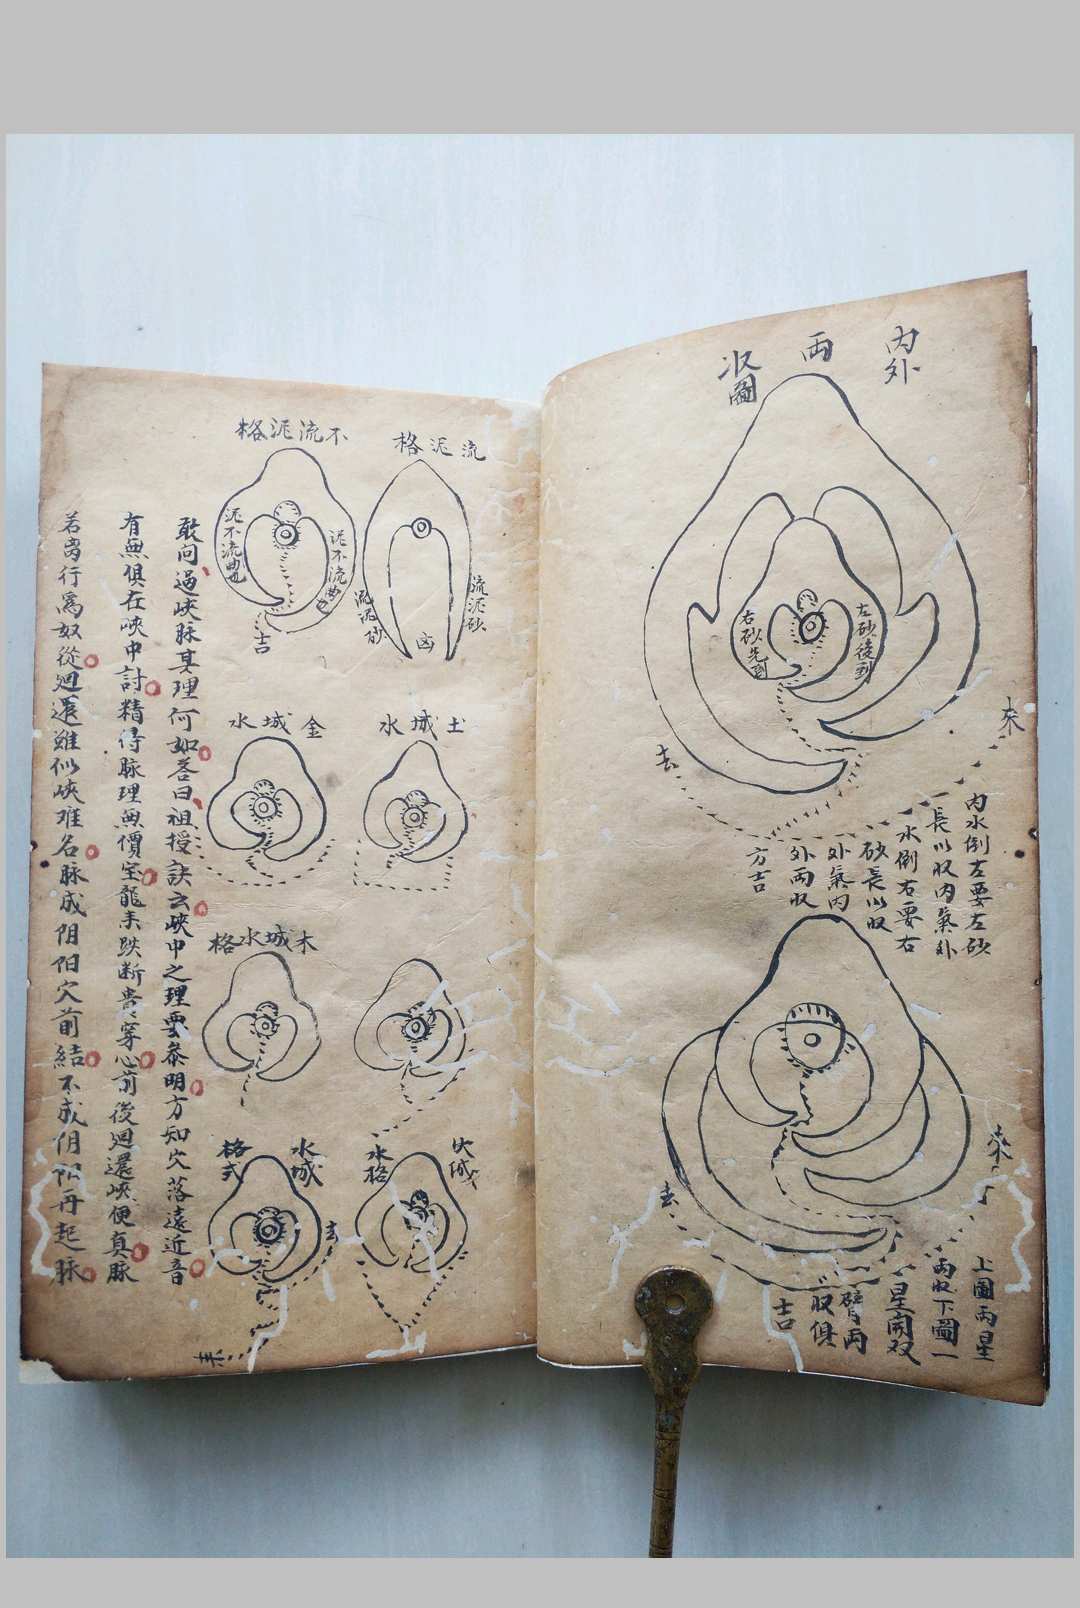 内外
両
収圖
左砂後到
右砂先到
來
去
内水倒左要左砂
長以収内氣外
水倒右要右
砂長以収
外氣内
外両収
方吉
來
去
上圖両星
両収下圖一
星開双
臂両
収俱
吉
流泥格
流泥砂
流泥砂
凶
不流泥格
泥不流曲也
泥不流曲也
吉
土城水
金城水
木城水格
火城
水格
水城
格式
去
來
敢问過峡脉其理何如答曰祖授訣云峡中之理要叅明方知穴落遠近音
有無俱在峡中討精得脉理無價宝龍来跌断贵穿心前後迴還峡便真脉
若 行爲奴從迴還雖似峡难名脉成阴阳穴前結不成阴阳再起脉